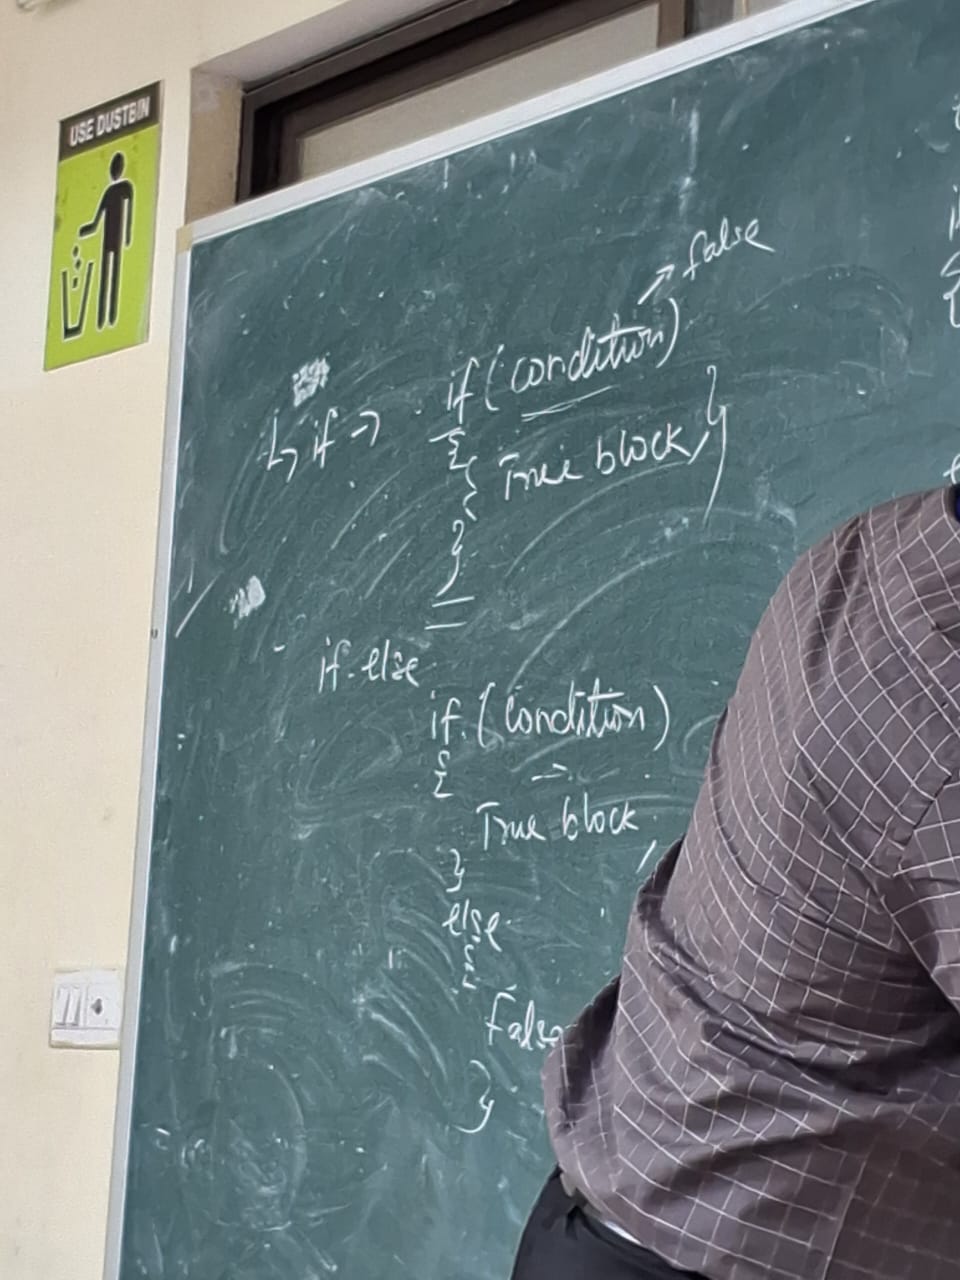 USE DUSTBIN
false
↳ if → if (condition)
{
True block
}
if-else
if (condition)
{
True block
}
else
{
False
}